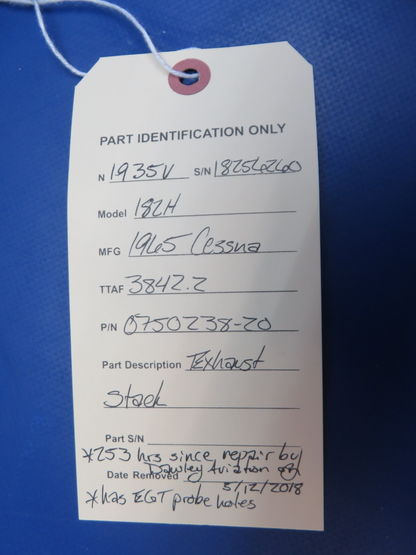 PART IDENTIFICATION ONLY
N 1935V S/N 18256260
Model 182H
MFG 1965 Cessna
TTAF 3842.2
P/N 0750238-20
Part Description Exhaust
Stack
Part S/N
*253 hrs since repair by
Dawley Aviation on
Date Removed 5/12/2018
*has EGT probe holes